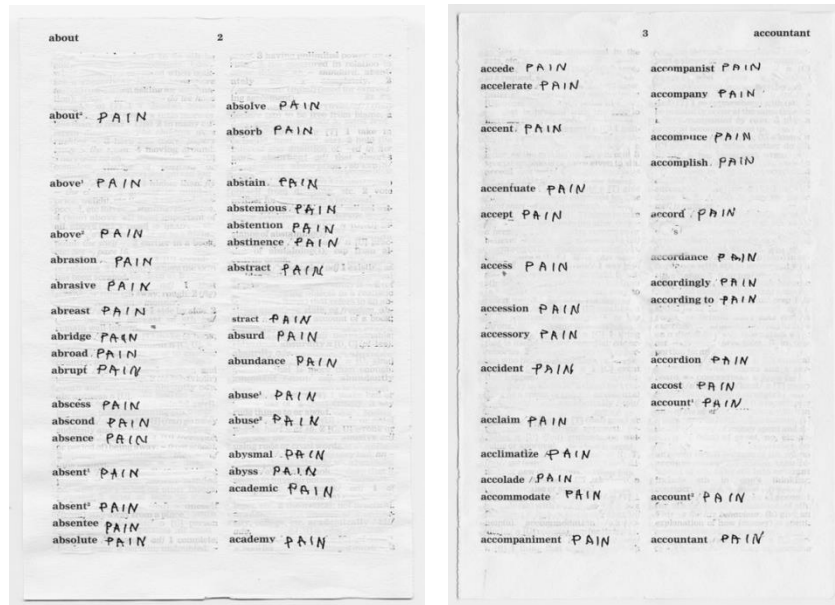 about 2
about² PAIN
above¹ PAIN
above² PAIN
abrasion PAIN
abrasive PAIN
abreast PAIN
abridge PAIN
abroad PAIN
abrupt PAIN
abscess PAIN
abscond PAIN
absence PAIN
absent¹ PAIN
absent² PAIN
absentee PAIN
absolute PAIN
absolve PAIN
absorb PAIN
abstain PAIN
abstemious PAIN
abstention PAIN
abstinence PAIN
abstract PAIN
stract PAIN
absurd PAIN
abundance PAIN
abuse¹ PAIN
abuse² PAIN
abysmal PAIN
abyss PAIN
academic PAIN
academy PAIN
3 accountant
accede PAIN
accelerate PAIN
accent PAIN
accentuate PAIN
accept PAIN
access PAIN
accession PAIN
accessory PAIN
accident PAIN
acclaim PAIN
acclimatize PAIN
accolade PAIN
accommodate PAIN
accompaniment PAIN
accompanist PAIN
accompany PAIN
accomplice PAIN
accomplish PAIN
accord PAIN
accordance PAIN
accordingly PAIN
according to PAIN
accordion PAIN
accost PAIN
account¹ PAIN
account² PAIN
accountant PAIN